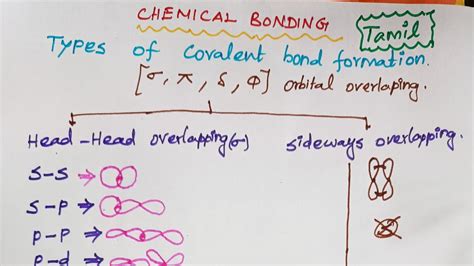 CHEMICAL BONDING
Tamil
Types of Covalent bond formation.
[σ, π, δ, φ] orbital overlaping.
Head-Head overlapping(σ)
Sideways overlapping.
S-S →
S-P →
P-P →
P-d →